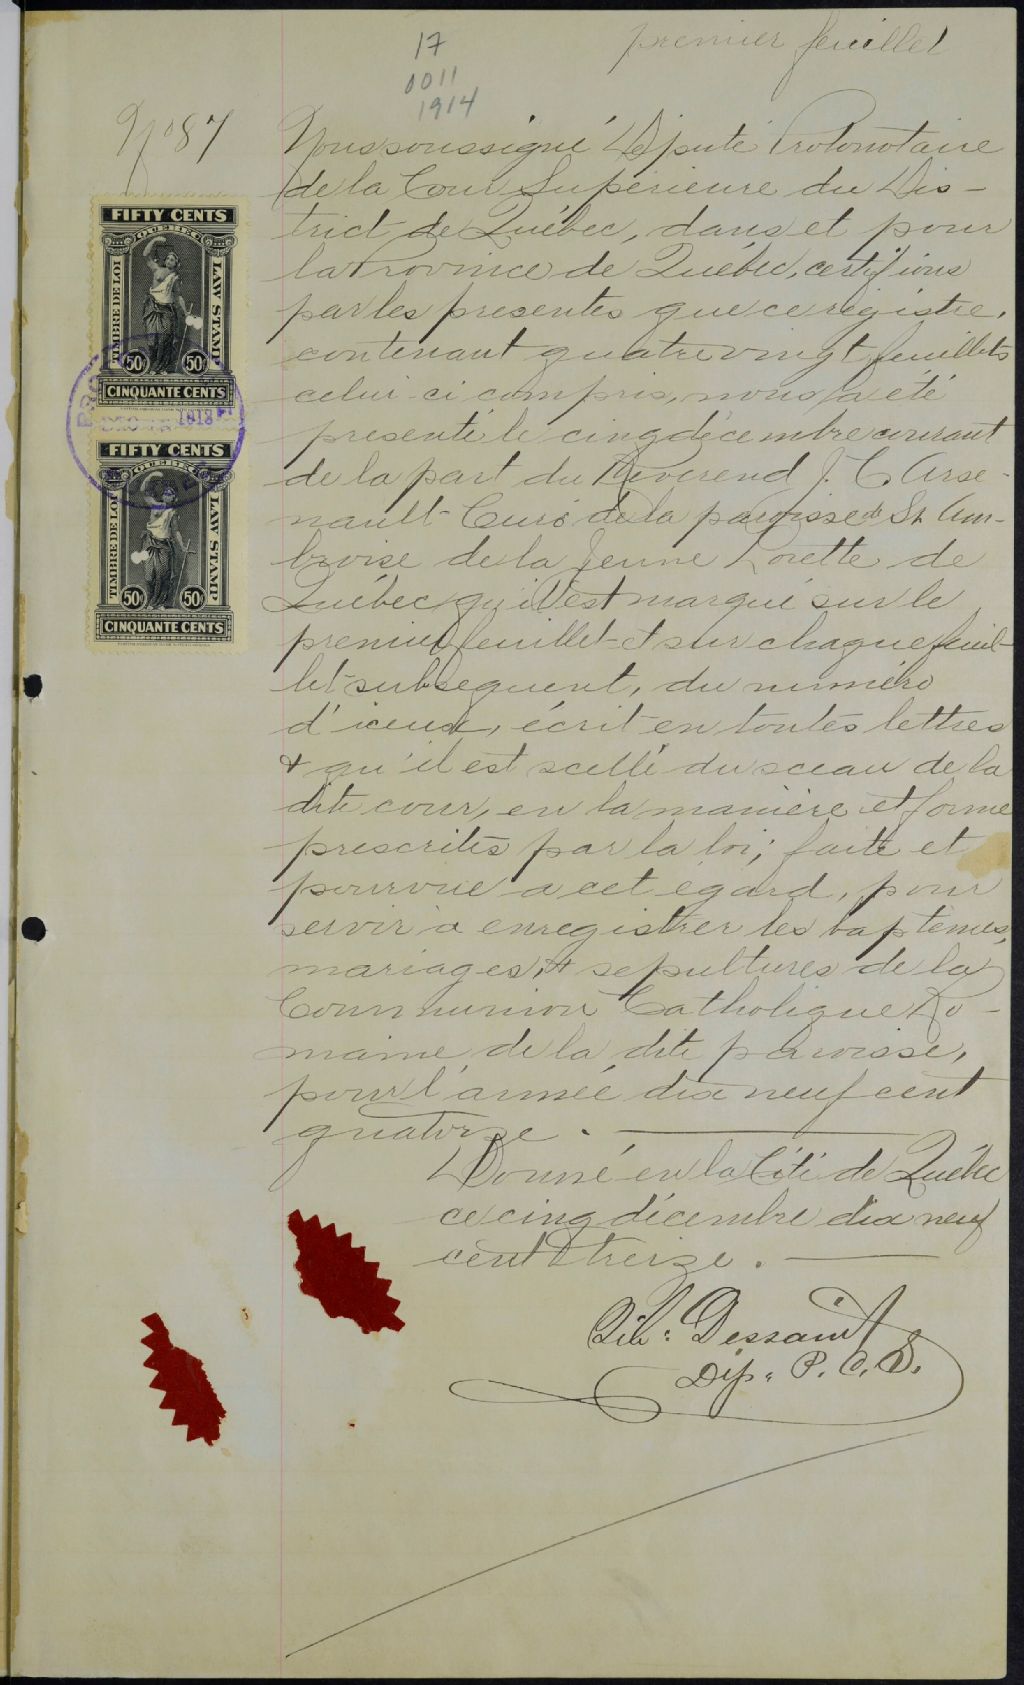 premier feuillet
17
0011
1914
No 87
Nous soussigné Député Protonotaire
de la Cour Supérieure du Dis-
trict de Québec, dans et pour
la Province de Québec, certifions
par les presentes que ce régistre,
contenant quatre vingt feuillets
celui-ci compris, nous a été
presenté le cinq décembre courant
de la part du Révérend J. C. Arse-
nault Curé de la paroisse de St Am-
broise de la Jeune Lorette de
Québec, qu'il est marqué sur le
premier feuillet et sur chaque feuil-
let subséquent, du numéro
d'iceux, écrit en toutes lettres
& qu'il est scellé du sceau de la
dite cour, en la manière et forme
prescrites par la loi; faite et
pourvue a cet egard, pour
servir à enregistrer les baptêmes,
mariages, & sepultures de la
Communion Catholique Ro-
maine de la dite paroisse,
pour l'année dix neuf cent
quatorze.
Donné en la Cité de Québec
ce cinq décembre dix neuf
cent treize.
Dessaint
Dép. P. C. S.
FIFTY CENTS
QUEBEC
TIMBRE DE LOI
LAW STAMP
50¢ 50¢
CINQUANTE CENTS
FIFTY CENTS
QUEBEC
TIMBRE DE LOI
LAW STAMP
50¢ 50¢
CINQUANTE CENTS